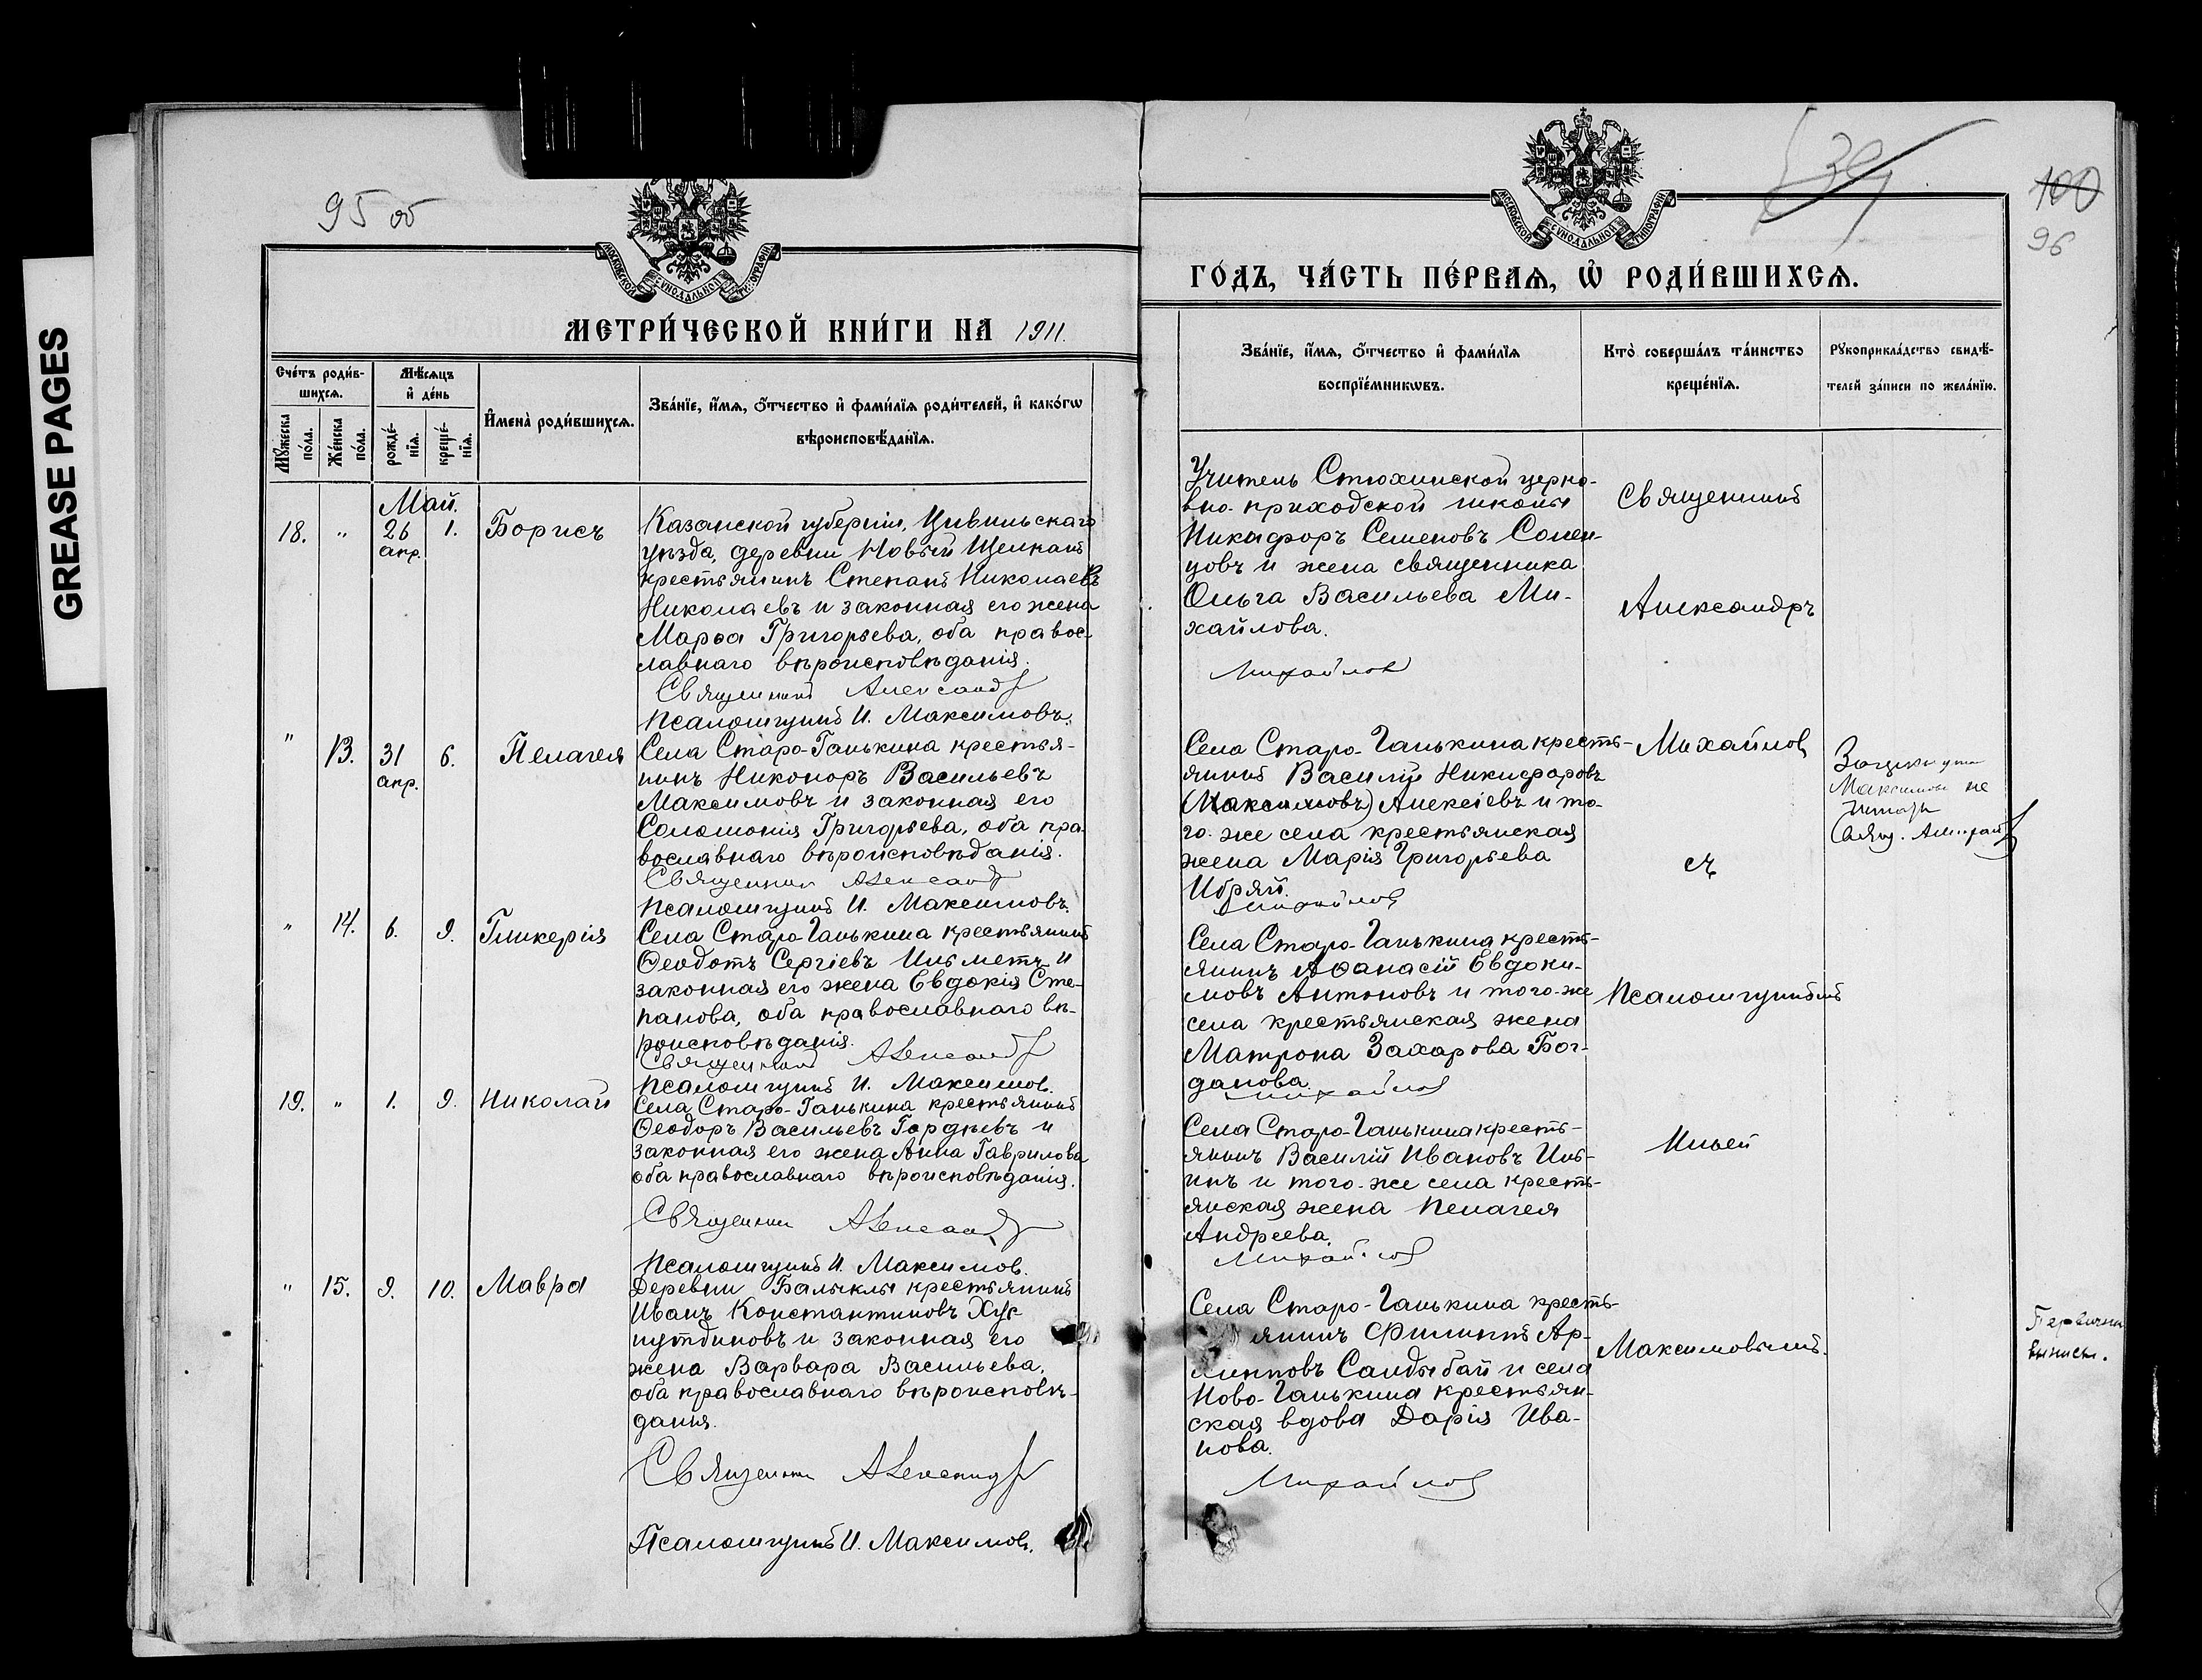 GREASE PAGES
95 об
МОСКОВСКОЙ СѴНОДАЛЬНОЙ ТИПОГРАФІИ
МЕТРИ́ЧЕСКОЙ КНИ́ГИ НА 1911.
Сче́тъ роди́в-
шихсѧ.
Мꙋ́жеска по́ла.
Же́нска по́ла.
Мѣ́сѧцъ
и҆ де́нь
рожде́-
нїѧ.
креще́-
нїѧ.
И҆мена̀ роди́вшихсѧ.
Зва́нїе, и҆́мѧ, ѻ҆́тчество и҆ фами́лїѧ роди́телей, и҆ како́гѡ
вѣроисповѣ́данїѧ.
Май.
18. " 26 апр. 1. Борисъ
Казанской губерніи, Цивильскаго
уѣзда, деревни Новый Щелканъ
крестьянинъ Степанъ Николаевъ
Николаевъ и законная его жена
Марѳа Григорьева, оба правос-
лавнаго вѣроисповѣданія.
Священникъ Александр
Псаломщикъ И. Максимовъ.
" 13. 31 апр. 6. Пелагея
Села Старо-Ганькина крестья-
нинъ Никоноръ Васильевъ
Максимовъ и законная его
Соломонія Григорьева, оба пра-
вославнаго вѣроисповѣданія.
Священник Александр
Псаломщикъ И. Максимовъ.
" 14. 6. 9. Гликерія
Села Старо-Ганькина крестьянинъ
Ѳеодотъ Сергіевъ Ильметъ и
законная его жена Евдокія Сте-
панова, оба православнаго вѣ-
роисповѣданія.
Священникъ Александр
Псаломщикъ И. Максимов.
19. " 1. 9. Николай
Села Старо-Ганькина крестьянинъ
Ѳеодоръ Васильевъ Гордѣевъ и
законная его жена Анна Гаврилова
оба православнаго вѣроисповѣданія.
Священник Александр
Псаломщикъ И. Максимов.
" 15. 9. 10. Мавра
Деревни Балыклы крестьянинъ
Иванъ Константиновъ
и законная его
жена Варвара Васильева,
оба православнаго вѣроисповѣ-
данія.
Священник Александр
Псаломщикъ И. Максимов.
100
96
МОСКОВСКОЙ СѴНОДАЛЬНОЙ ТИПОГРАФІИ
ГО́ДЪ, ЧА́СТЬ ПЕ́РВАѦ, Ѡ҆ РОДИ́ВШИХСѦ.
Зва́нїе, и҆́мѧ, ѻ҆́тчество и҆ фами́лїѧ
воспрїе́мникѡвъ.
Кто̀ соверша́лъ та́инство
креще́нїѧ.
Рꙋкоприкла́дство свидѣ́-
телей за́писи по жела́нїю.
Учитель Стюхинской церко-
вно-приходской школы
Никифоръ Семеновъ
и жена священника
Ольга Васильева Ми-
хайлова.
Михайлов
Села Старо-Ганькина кресть-
янинъ Василій Никифоровъ
(Максимовъ) Алексіевъ и то-
го-же села крестьянская
жена Марія Григорьева
Ибряй.
Михайлов
Села Старо-Ганькина кресть-
янинъ Аѳанасій Евдоки-
мовъ Антоновъ и того-же
села крестьянская жена
Матрона Захарова Бог-
данова.
Михайлов
Села Старо-Ганькина кресть-
янинъ Василій Ивановъ Иль-
инъ и того-же села кресть-
янская жена Пелагея
Андреева.
Михайлов
Села Старо-Ганькина кресть-
янинъ Филиппъ Ар-
Салдыбай и села
Ново-Ганькина крестьян-
ская вдова Дарія Ива-
нова.
Михайлов
Священникъ
Александръ
Михайлов
съ
Псаломщикомъ
Ильей
Максимовымъ.
Максимовъ не
читать
Свящ.